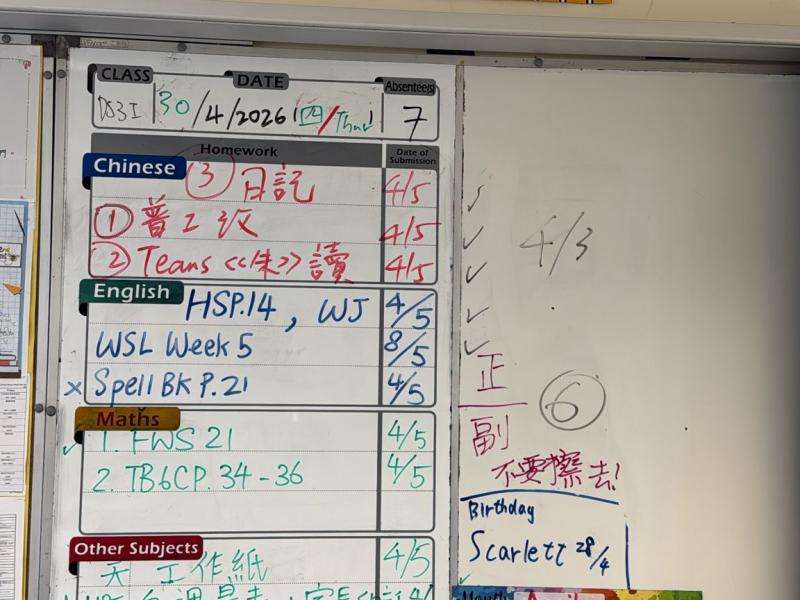 CLASS DATE Absentee(s)
30/4/2026(四/Thu) 7
Homework Date of Submission
Chinese ③ 日記 4/5
① 普工 4/5
② Teams 《》讀 4/5
English HSP.14, WJ 4/5
WSL Week 5 8/5
× Spell BK P.21 4/5
Maths
✓ 1. FWS 21 4/5
2. TB6CP.34-36 4/5
Other Subjects
工作紙 4/5
4/3
正
⑥
副
不要擦去!
Birthday
Scarlett 28/4